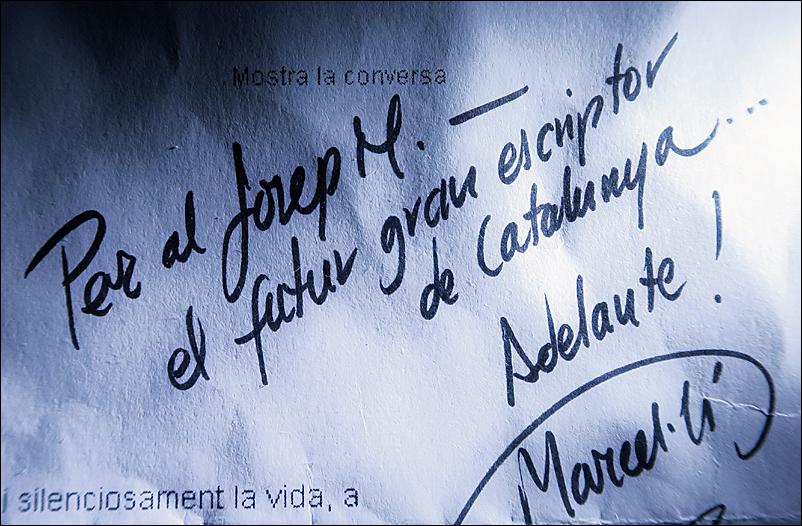 Mostra la conversa
Per al Josep M. —
el futur gran escriptor
de Catalunya...
Adelante!
Marcel·lí
i silenciosament la vida, a